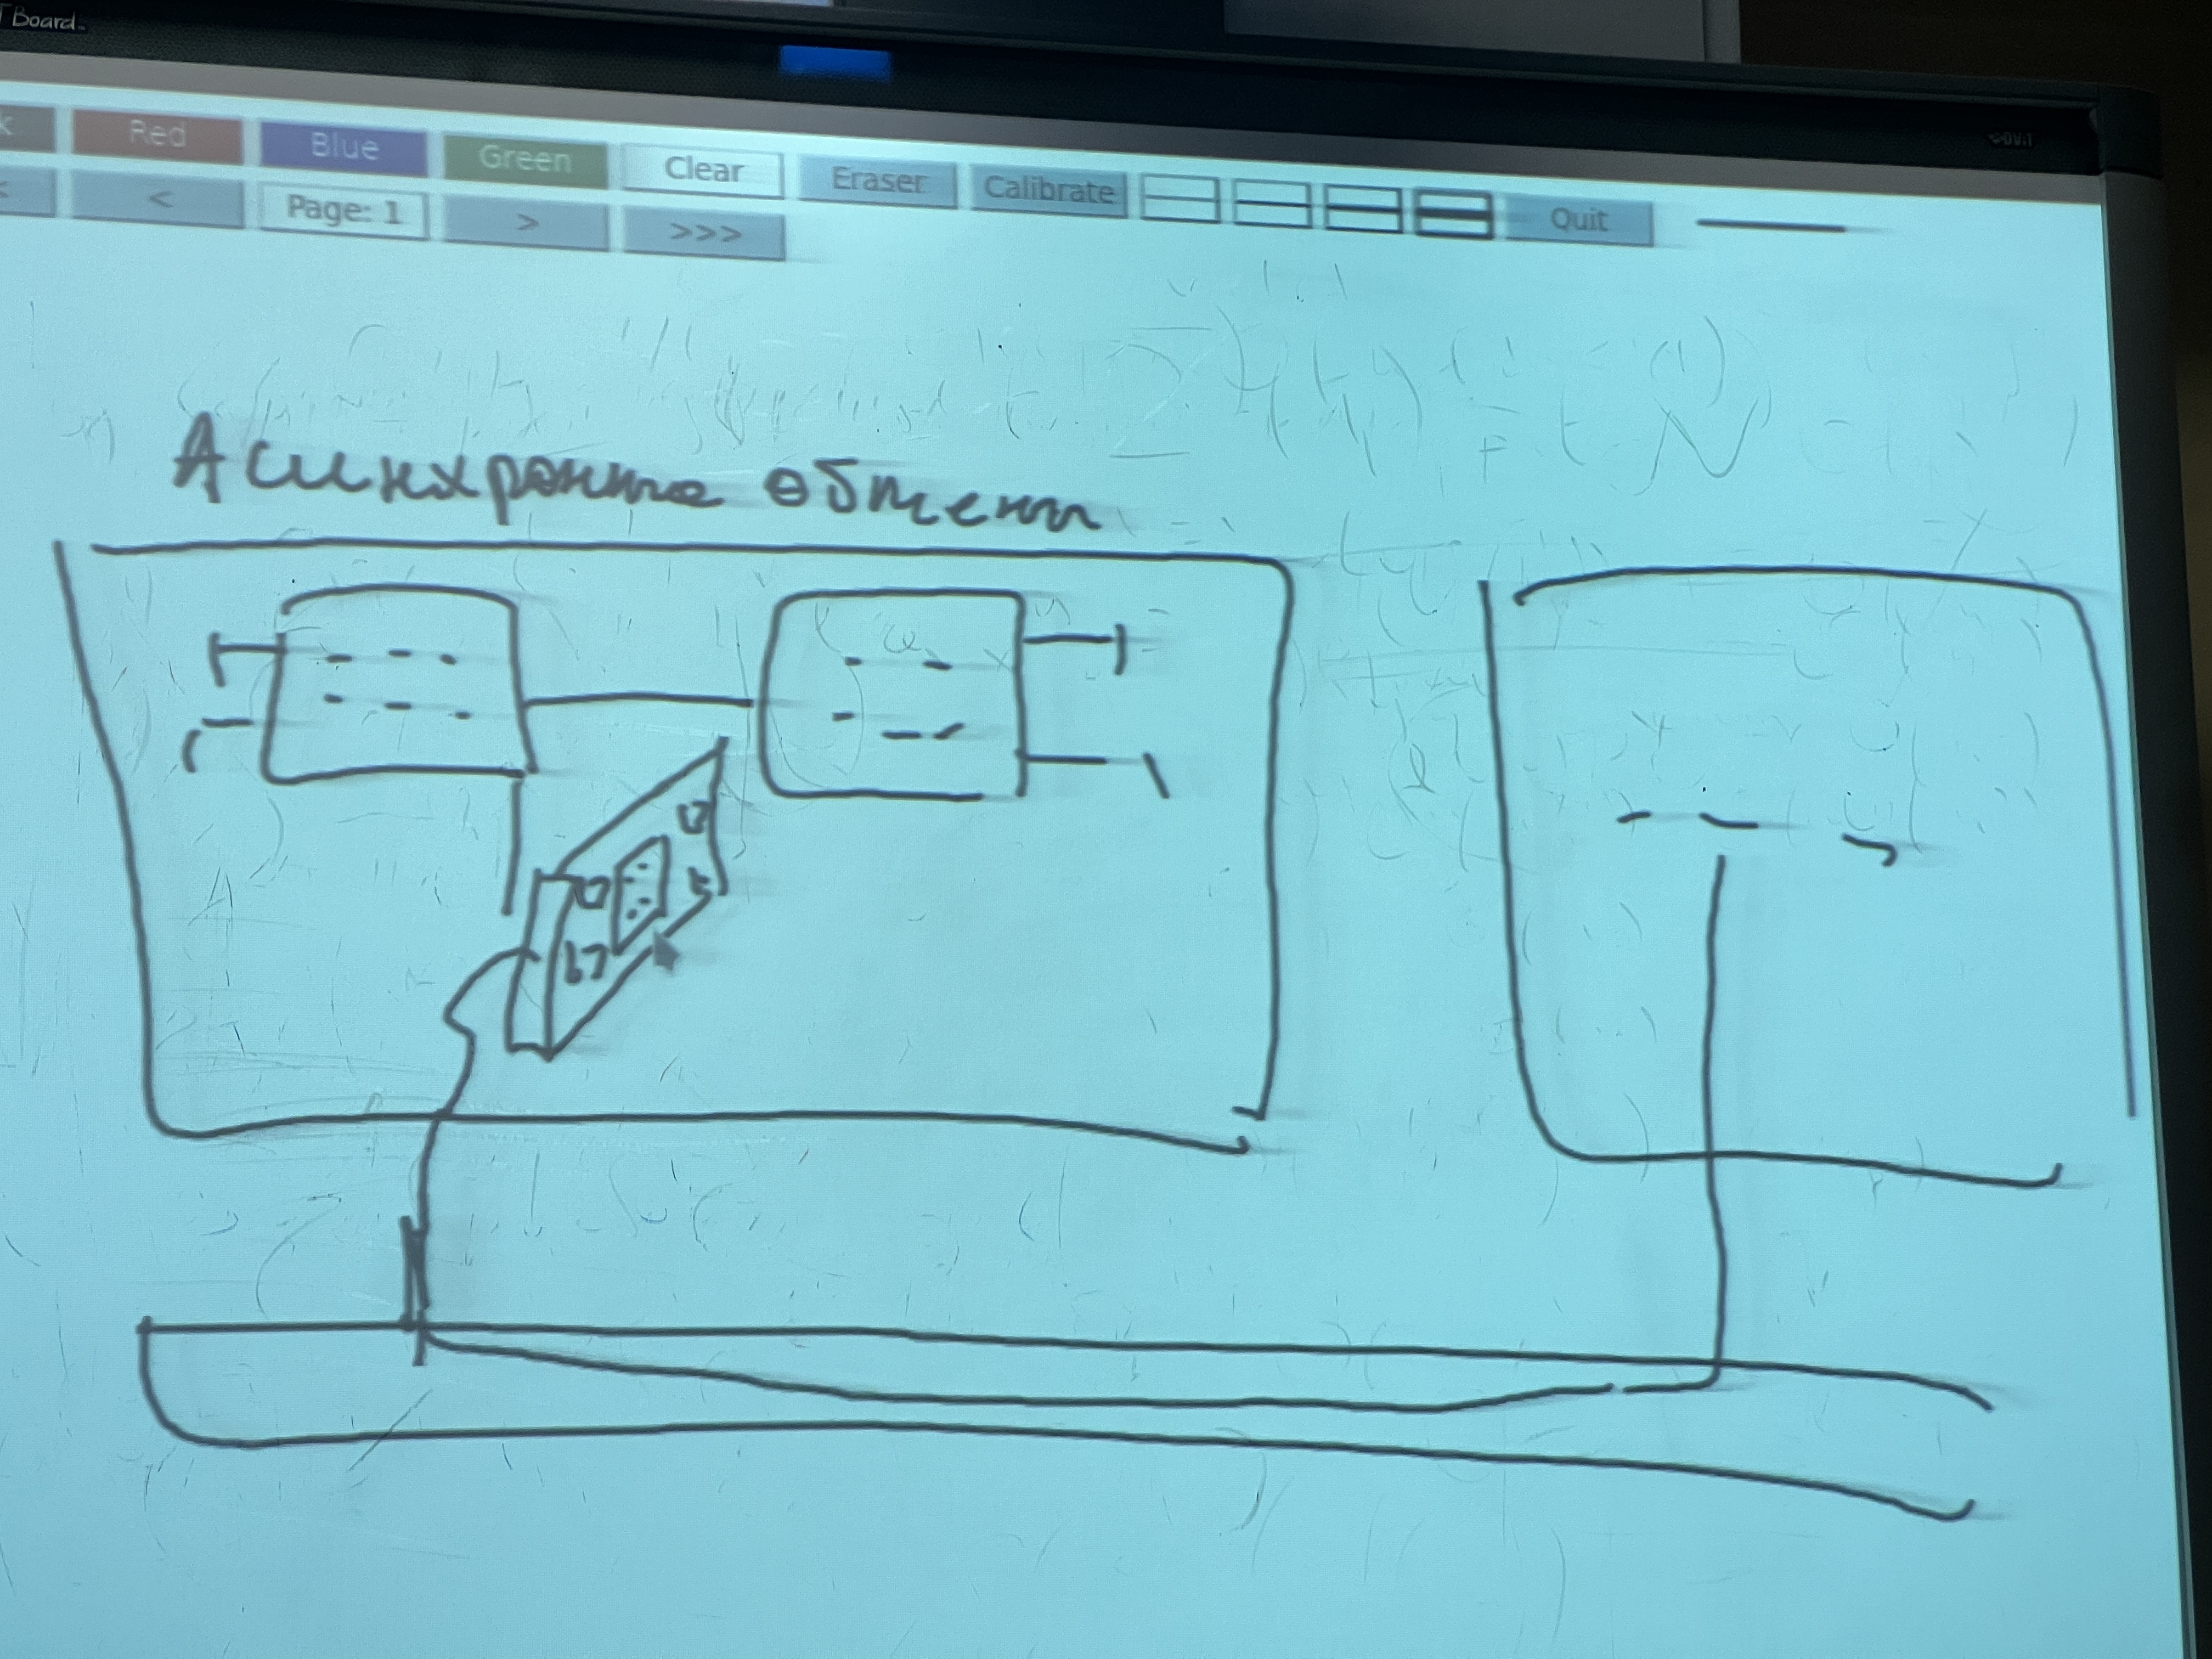 T Board
k Red Blue Green Clear Eraser Calibrate Quit
< < Page: 1 > >>>
Асинхронные обмены